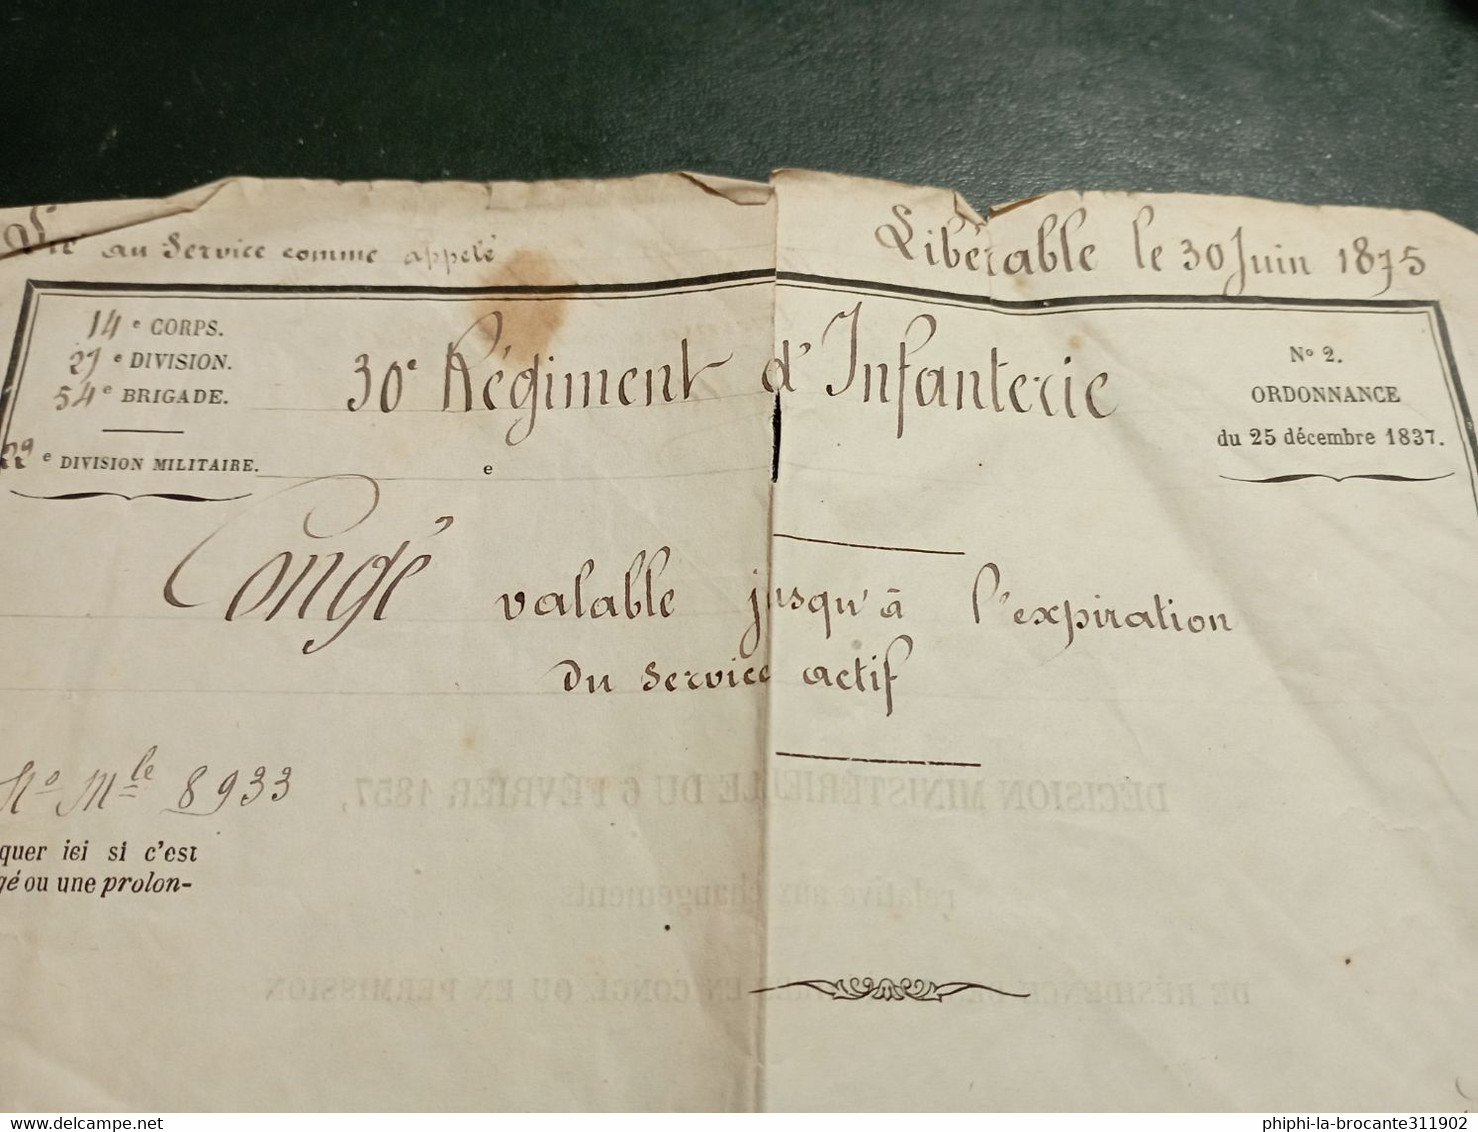 Lié au Service comme appelé
Libérable le 30 Juin 1875
14e CORPS.
27e DIVISION.
54e BRIGADE.
22e DIVISION MILITAIRE.
30e Régiment d'Infanterie
e
No 2.
ORDONNANCE
du 25 décembre 1837.
Congé valable jusqu'à l'expiration
du service actif
No Mle 8933
quer ici si c'est
gé ou une prolon-
DÉCISION MINISTÉRIELLE DU 6 FÉVRIER 1857,
relative aux changements
DE RÉSIDENCE EN CONGÉ OU EN PERMISSION
delcampe.net
phiphi-la-brocante311902